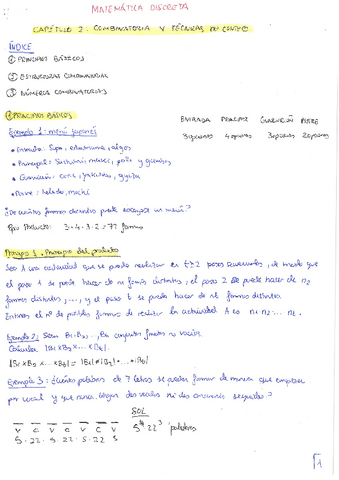 MATEMÁTICA DISCRETA
CAPÍTULO 2: COMBINATORIA Y TÉCNICAS DE CONTEO
ÍNDICE
① PRINCIPIOS BÁSICOS
② ESTRUCTURAS COMBINATORIAS
③ NÚMEROS COMBINATORIOS
① PRINCIPIOS BÁSICOS
ENTRADA PRINCIPAL GUARNICIÓN POSTRE
Ejemplo 1: menú japonés
3 opciones 4 opciones 3 opciones 2 opciones
• Entrada: Sopa, edamame, algas
• Principal: pollo y
• Guarnición:
• Postre: helado, mochi
¿De cuántas formas distintas puede escogerse un menú?
Producto: 3·4·3·2 = 72 formas
Principio 1. Principio del producto
Sea A una actividad que se puede realizar en t≥2 pasos sucesivos, de modo que
el paso 1 se puede hacer de n₁ formas distintas, el paso 2 se puede hacer de n₂
formas distintas, ..., y el paso t se puede hacer de nt formas distintas.
Entonces el nº de posibles formas de realizar la actividad A es n₁·n₂·...·nt.
Ejemplo 2: Sean B₁, B₂, ..., conjuntos finitos no vacíos.
Calcular |B₁ x B₂ x ... x Bt|
|B₁ x B₂ x ... x Bt| = |B₁|·|B₂|·...·|Bt|
Ejemplo 3: ¿Cuántas palabras de 7 letras se pueden formar de manera que empiecen
por vocal y que nunca tengan dos vocales ni dos consonantes seguidas?
SOL
V C V C V C V 5⁴·22³ palabras
5·22·5·22·5·22·5
1